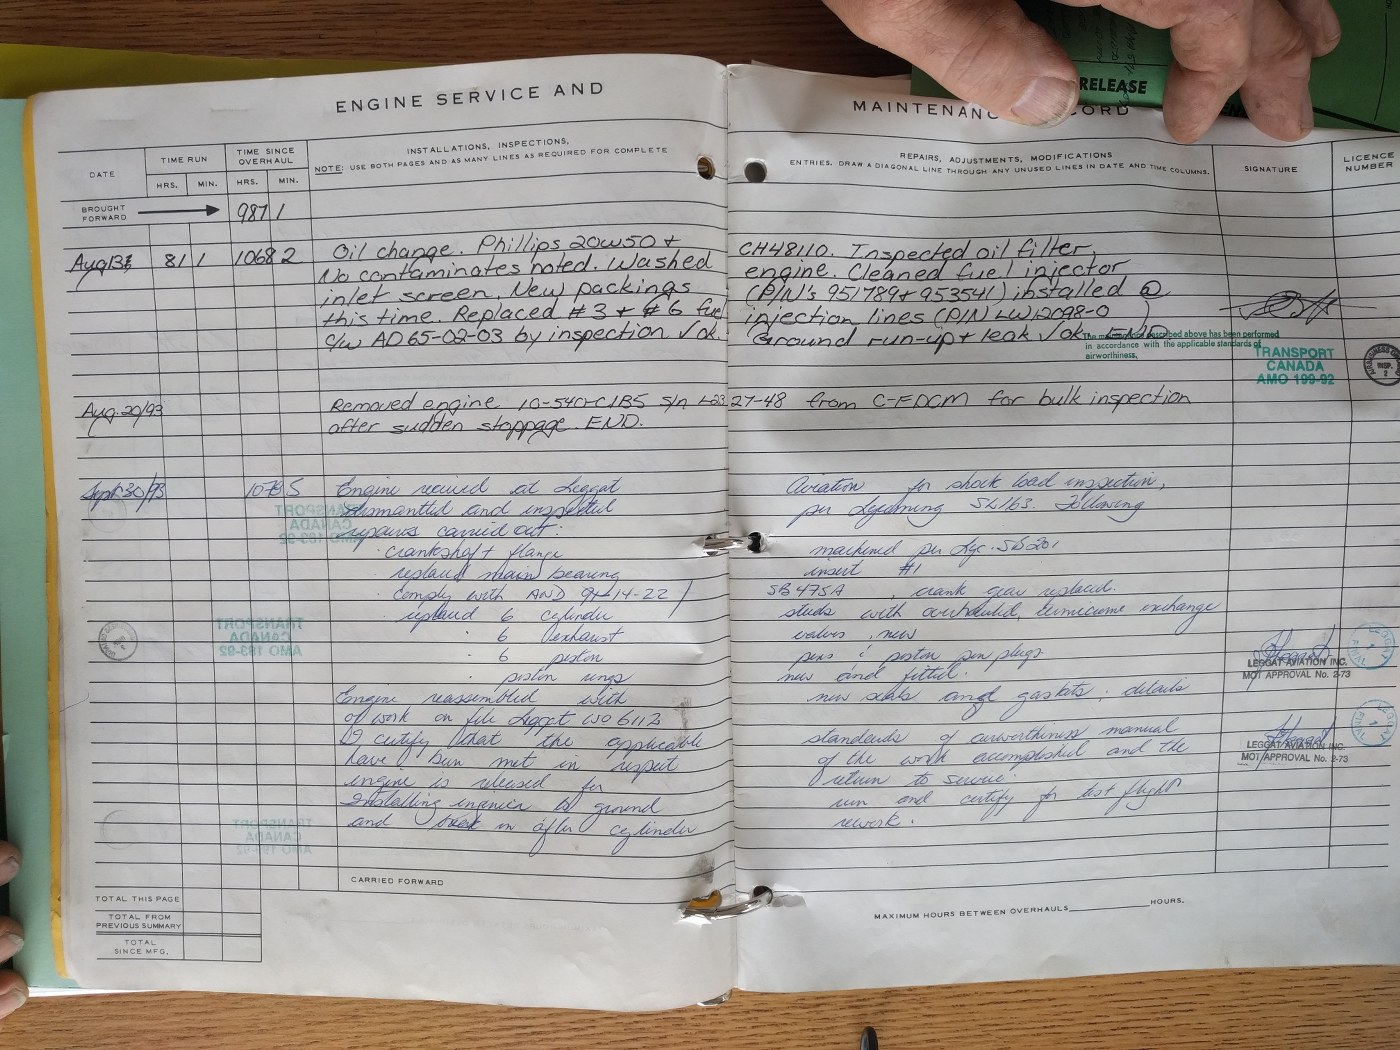 RELEASE
ENGINE SERVICE AND MAINTENANC CORD
DATE
TIME RUN
HRS. MIN.
TIME SINCE OVERHAUL
HRS. MIN.
INSTALLATIONS, INSPECTIONS, REPAIRS, ADJUSTMENTS, MODIFICATIONS
NOTE: USE BOTH PAGES AND AS MANY LINES AS REQUIRED FOR COMPLETE ENTRIES. DRAW A DIAGONAL LINE THROUGH ANY UNUSED LINES IN DATE AND TIME COLUMNS.
SIGNATURE
LICENCE NUMBER
BROUGHT FORWARD 987 1
Aug 81 1 1068 2 Oil change. Phillips 20w50 + CH48110. Inspected oil filter,
No contaminates noted. Washed engine. Cleaned fuel injector
inlet screen. New packings (P/N's 951789 + 953541) installed @
this time. Replaced #3 + #6 fuel injection lines (P/N LW12098-0
c/w AD 65-02-03 by inspection √ok. Ground run-up + leak √ok. END
The described above has been performed
in accordance with the applicable standards of
airworthiness.
TRANSPORT
CANADA
AMO 199-92
Aug. 20/93 Removed engine IO-540-C1B5 s/n 27-48 from C-FDCM for bulk inspection
after sudden stoppage. END.
Sept 30/93 5 Engine recived at Leggat Aviation for shock load inspection,
dismantled and inspected per Lycoming SL163. Following
repaires carried out:
· crankshaft flange machined per Lyc. SB201
· replaced main bearing insert #1
· comply with AND 14-22 / SB 475A, crank gear replaced.
· replaced 6 cylinder studs with overhauled, exchange
· 6 exhaust valves, new
· 6 piston pins & piston pin plugs
· piston rings new and fitted.
Engine reassembled with new seals and gaskets. details
of work on file Leggat WO 6112
I certify that the applicable standards of airworthiness manual
have been met in respect of the work accomplished and the
engine is released for return to service.
Installing engineer to ground run and certify for test flight
and break in after cylinder rework.
LEGGAT AVIATION INC.
MOT APPROVAL No. 2-73
LEGGAT AVIATION INC.
MOT APPROVAL No. 2-73
CARRIED FORWARD
TOTAL THIS PAGE
TOTAL FROM PREVIOUS SUMMARY
TOTAL SINCE MFG.
MAXIMUM HOURS BETWEEN OVERHAULS HOURS.